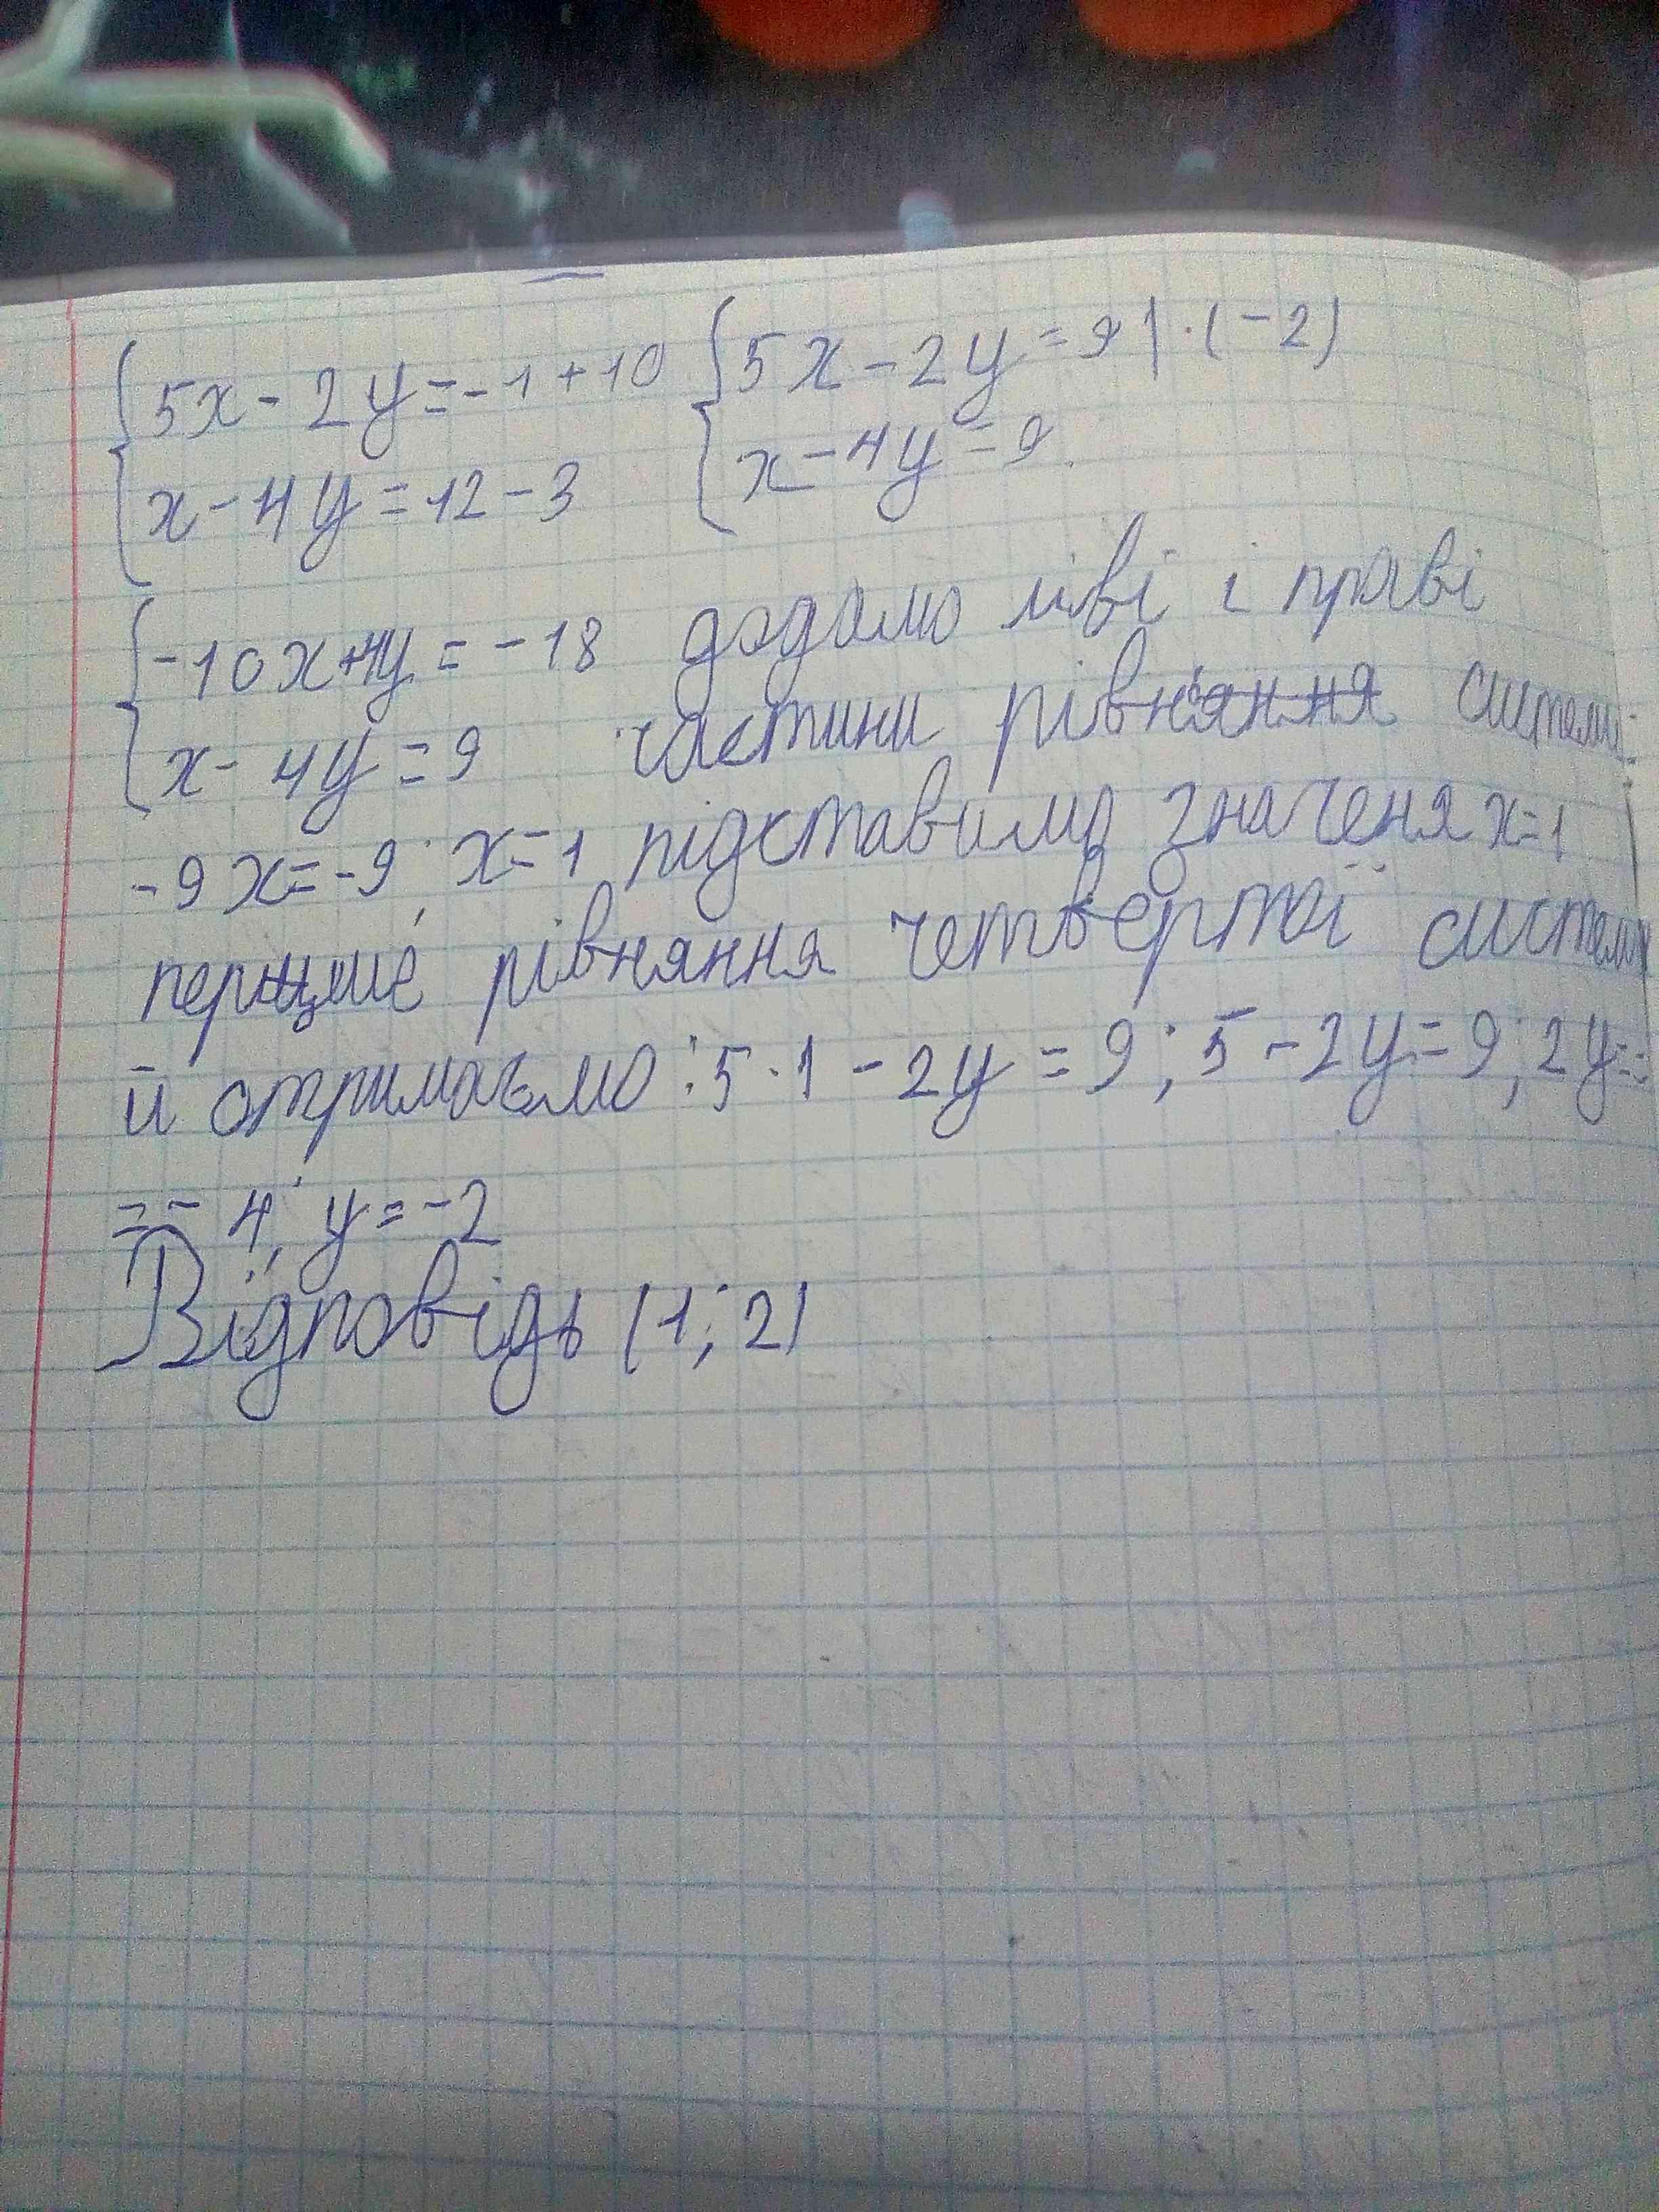 5x - 2y = -1 + 10 5x - 2y = 9 | · (-2)
x - 4y = 12 - 3 x - 4y = 9
-10x + 4y = -18 додамо ліві і праві
x - 4y = 9 частини рівняння системи:
-9x = -9; x = 1 підставимо значеня x = 1
перше рівняння четвертої системи
й отримаємо: 5 · 1 - 2y = 9; 5 - 2y = 9; 2y =
= -4; y = -2
Відповідь (1; 2)